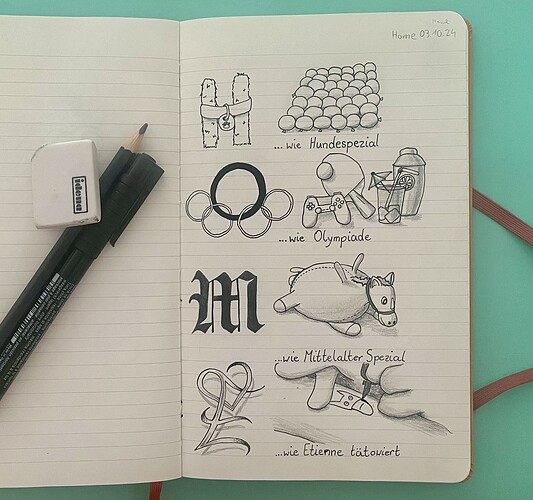 Home 03.10.24
H
...wie Hundespezial
O
...wie Olympiade
M
...wie Mittelalter Spezial
E
...wie Etienne tätowiert